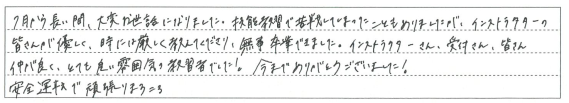 7月から長い間、大変お世話になりました。技能教習で苦労してしまったこともありましたが、インストラクターの
皆さんが優しく、時には厳しく教えてくださり、無事卒業できました。インストラクターさん、受付さん、皆さん
仲が良く、とても良い雰囲気の教習者でした！。今までありがとうございました！
安全運転で頑張りまうっう